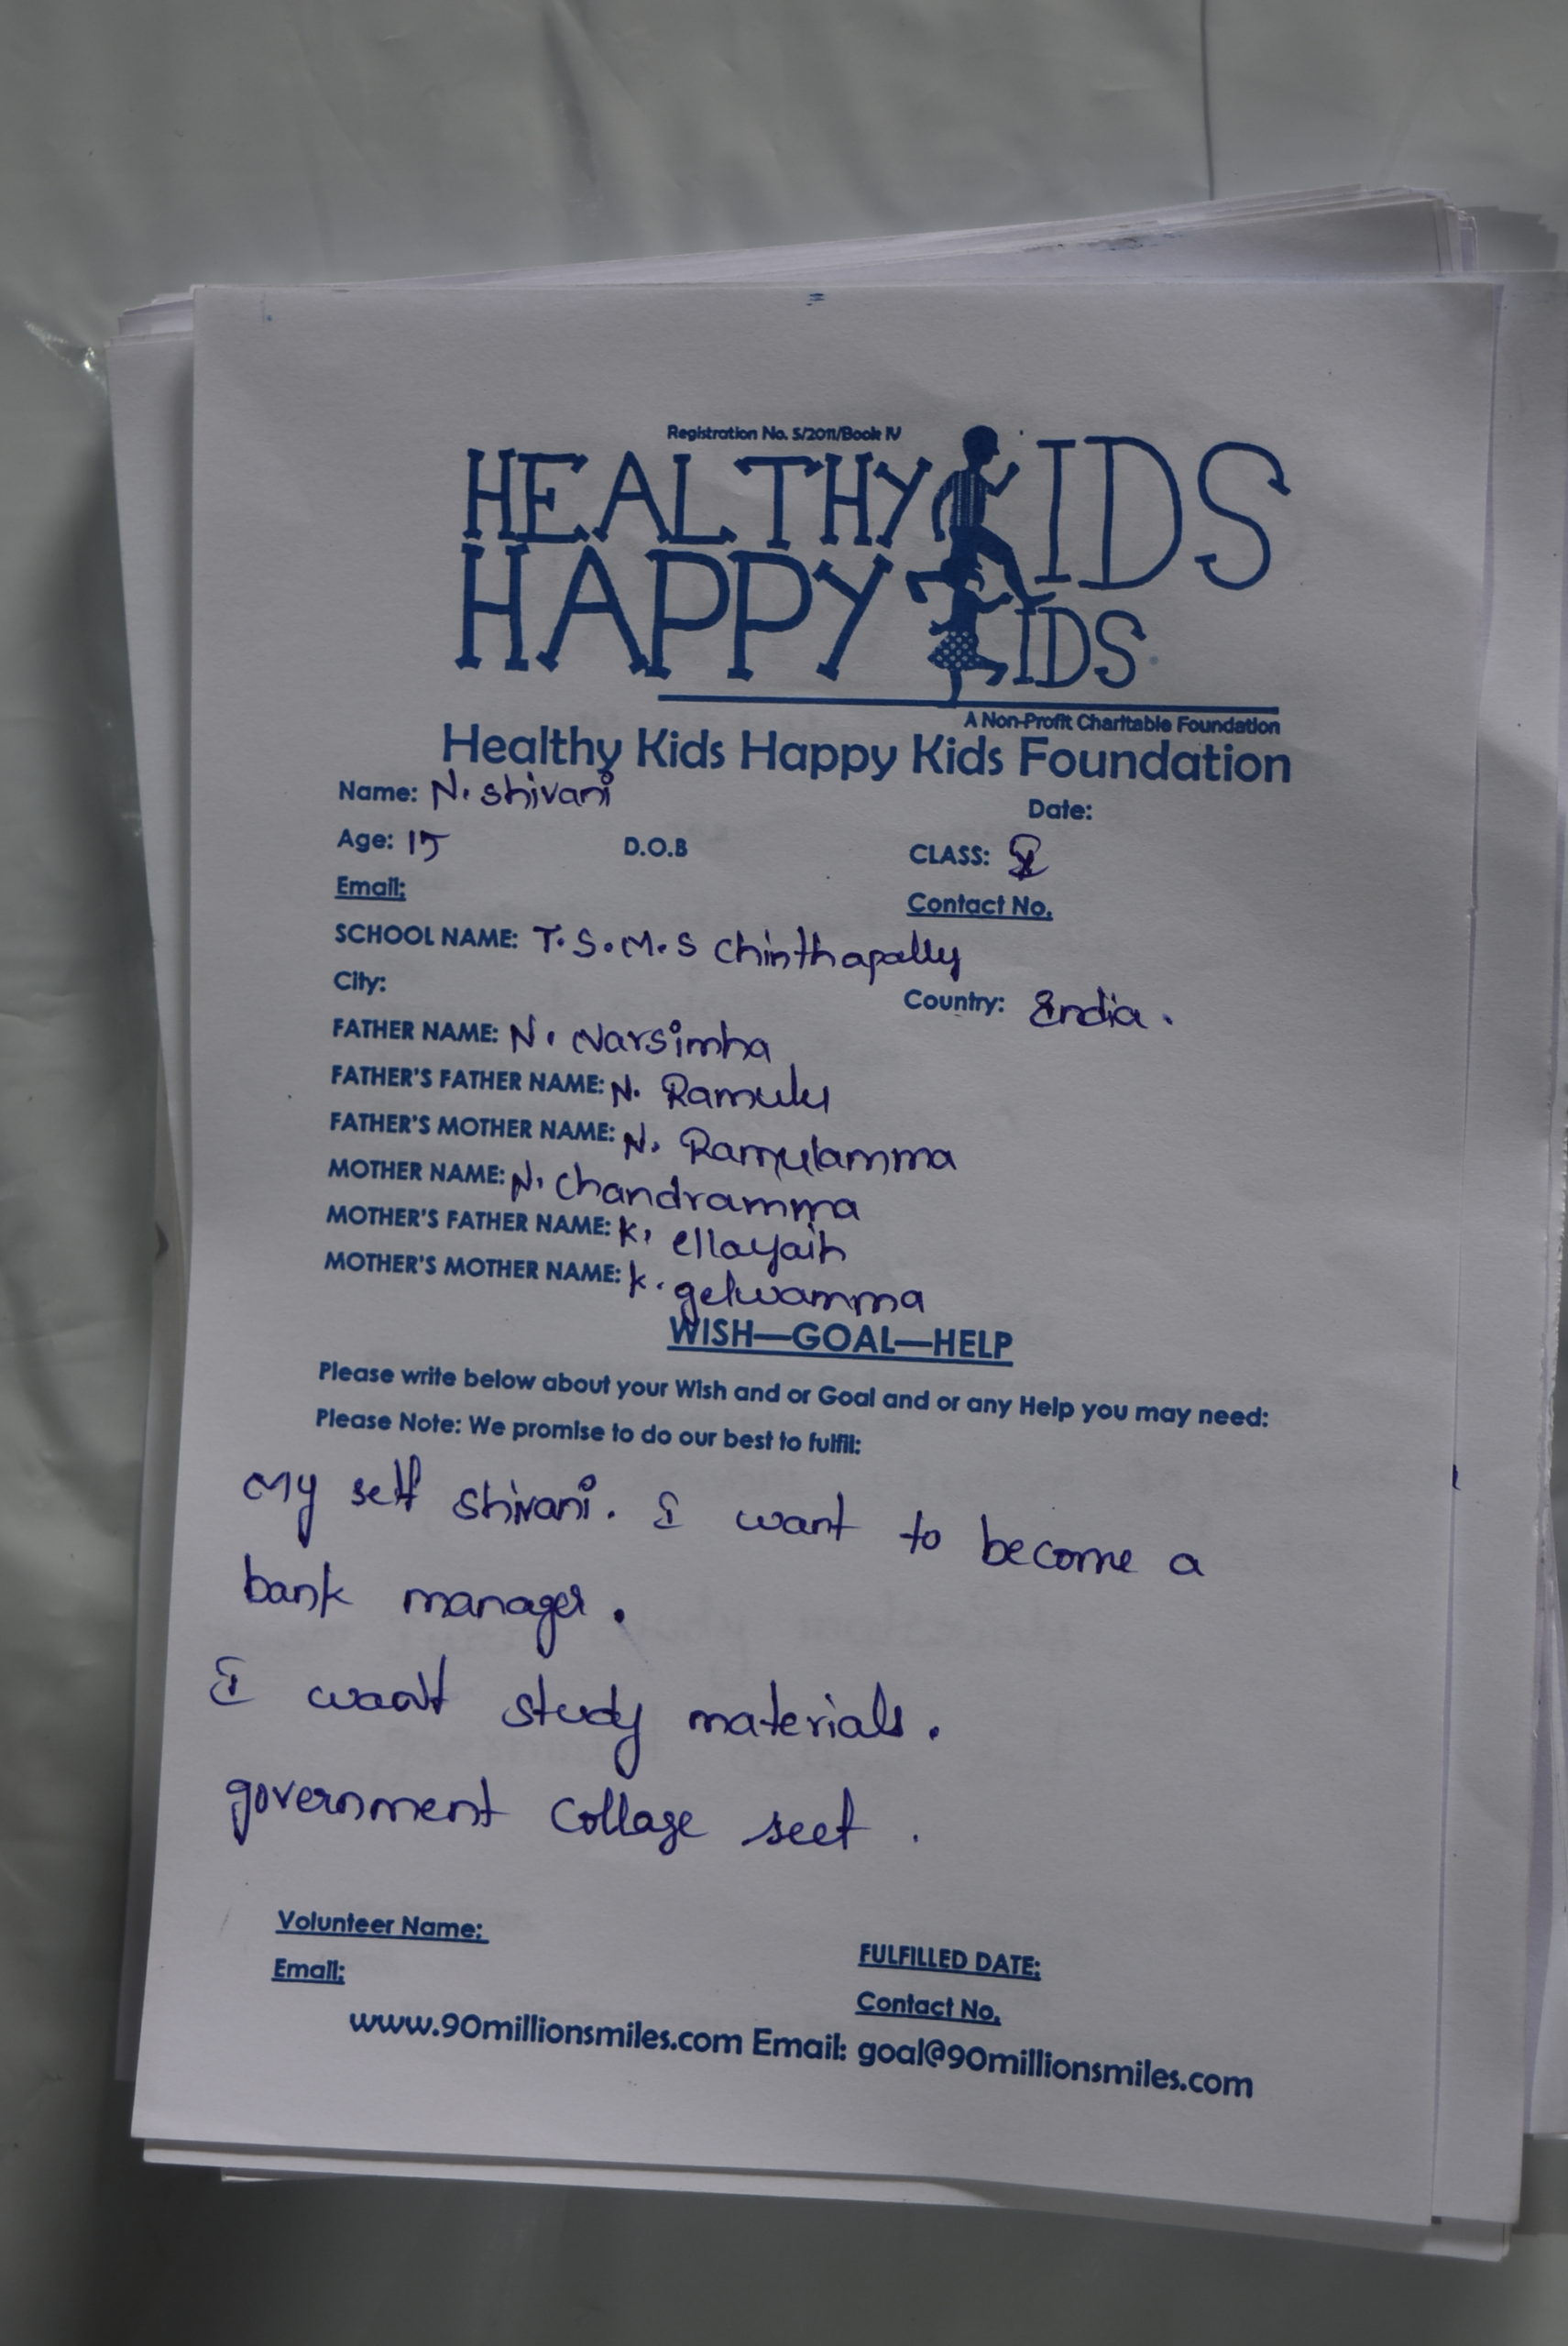 Registration No. 5/2011/Book IV
HEALTHY KIDS
HAPPY KIDS
A Non-Profit Charitable Foundation
Healthy Kids Happy Kids Foundation
Name: N. Shivani
Date:
Age: 15 D.O.B CLASS:
Email: Contact No.
SCHOOL NAME: T.S.M.S Chinthapally
City: Country: India.
FATHER NAME: N. Narsimha
FATHER'S FATHER NAME: N. Ramulu
FATHER'S MOTHER NAME: N. Ramulamma
MOTHER NAME: N. Chandramma
MOTHER'S FATHER NAME: K. ellayaih
MOTHER'S MOTHER NAME: K. gelwamma
WISH—GOAL—HELP
Please write below about your Wish and or Goal and or any Help you may need:
Please Note: We promise to do our best to fulfil:
My self Shivani. I want to become a
bank manager.
I want study materials.
government collage seet.
Volunteer Name: FULFILLED DATE:
Email: Contact No.
www.90millionsmiles.com Email: goal@90millionsmiles.com